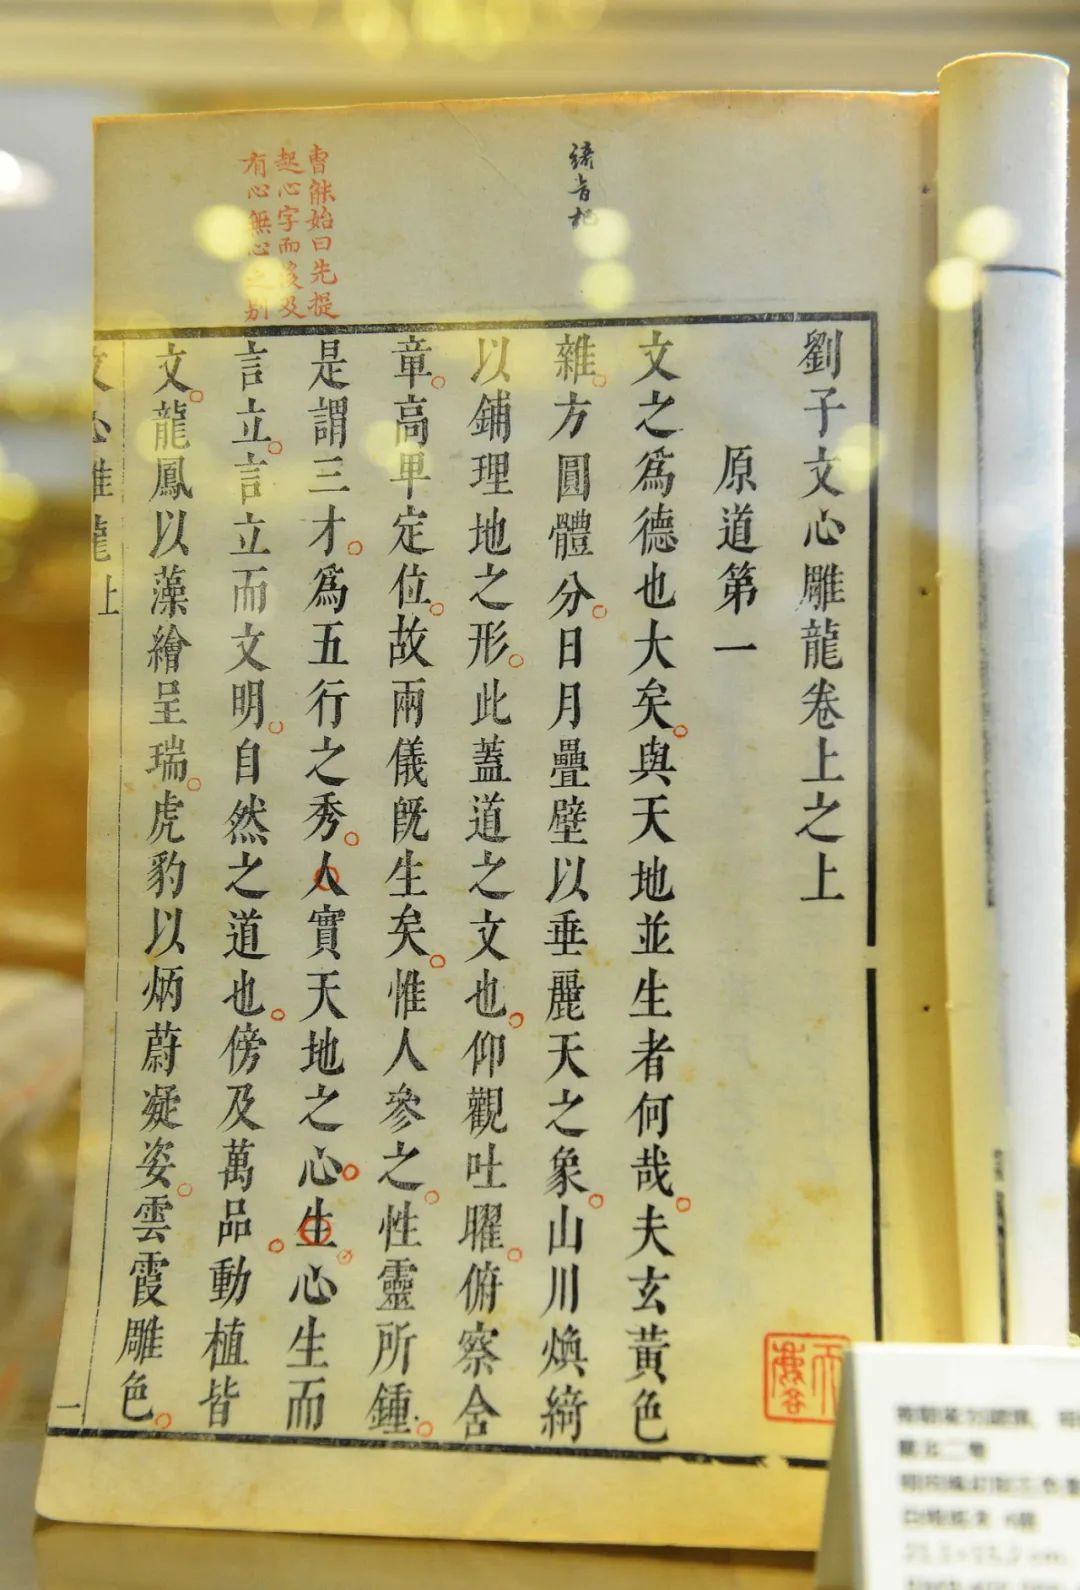 劉子文心雕龍卷上之上
原道第一
文之爲德也大矣與天地並生者何哉夫玄黃色
雜方圓體分日月疊壁以垂麗天之象山川煥綺
以鋪理地之形此蓋道之文也仰觀吐曜俯察含
章高卑定位故兩儀旣生矣惟人參之性靈所鍾
是謂三才爲五行之秀人實天地之心生心生而
言立言立而文明自然之道也傍及萬品動植皆
文龍鳳以藻繪呈瑞虎豹以炳蔚凝姿雲霞雕色
文心雕龍上
一
綺音起
曹能始曰先提
起心字而後及
有心無心之別